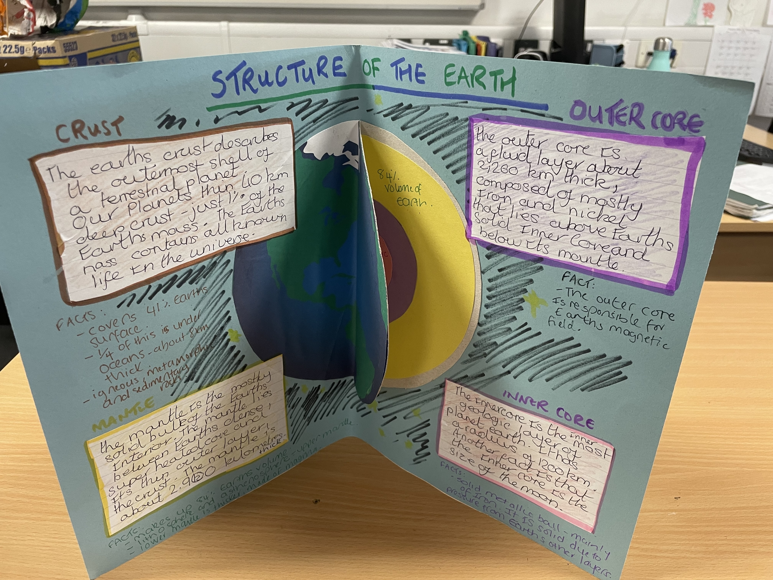 22.5g Packs
STRUCTURE OF THE EARTH
CRUST
The earths crust describes
the outermost shell of
a terrestrial planet
Our planets thin, 40 km
deep crust just 1% of the
Earths mass. The Earths
mass contains all known
life in the universe.
FACTS:
- covers 41% Earths
surface
- 1/4 of this is under
oceans - about
thick
- igneous, metamorphic
and sedimentary
MANTLE
the mantle is the mostly
solid bulk of the Earths
interior. The mantle lies
between Earths dense
super heated core and
its thin outer layer,
the crust. The mantle is
about 2,900 kilometres
thick
FACTS:
84%
volume of
EARTH.
OUTER CORE
the outer core is
a fluid layer about
2,260 km thick,
composed of mostly
iron and nickel
that lies above Earths
solid Inner core and
below its mantle.
FACT:
- The outer core
is responsible for
Earths magnetic
field.
INNER CORE
The Inner core is the inner most
geologic layer of
planet earth. It has
a radius of 1200 km.
Another fact is that
the inner core is the
size of the moon.
FACTS:
- Solid metallic ball mainly
of iron. It is solid due to
pressure from Earths other layers